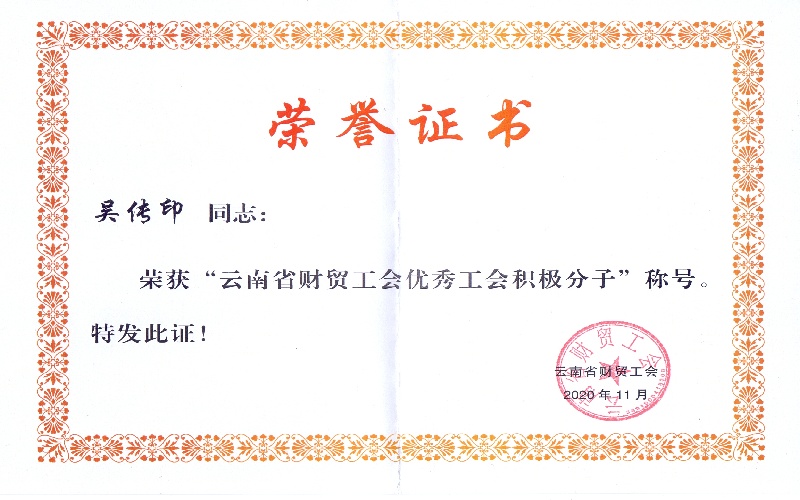 荣誉证书
吴传印 同志：
荣获“云南省财贸工会优秀工会积极分子”称号。
特发此证！
云南省财贸工会
云南省财贸工会
2020年11月